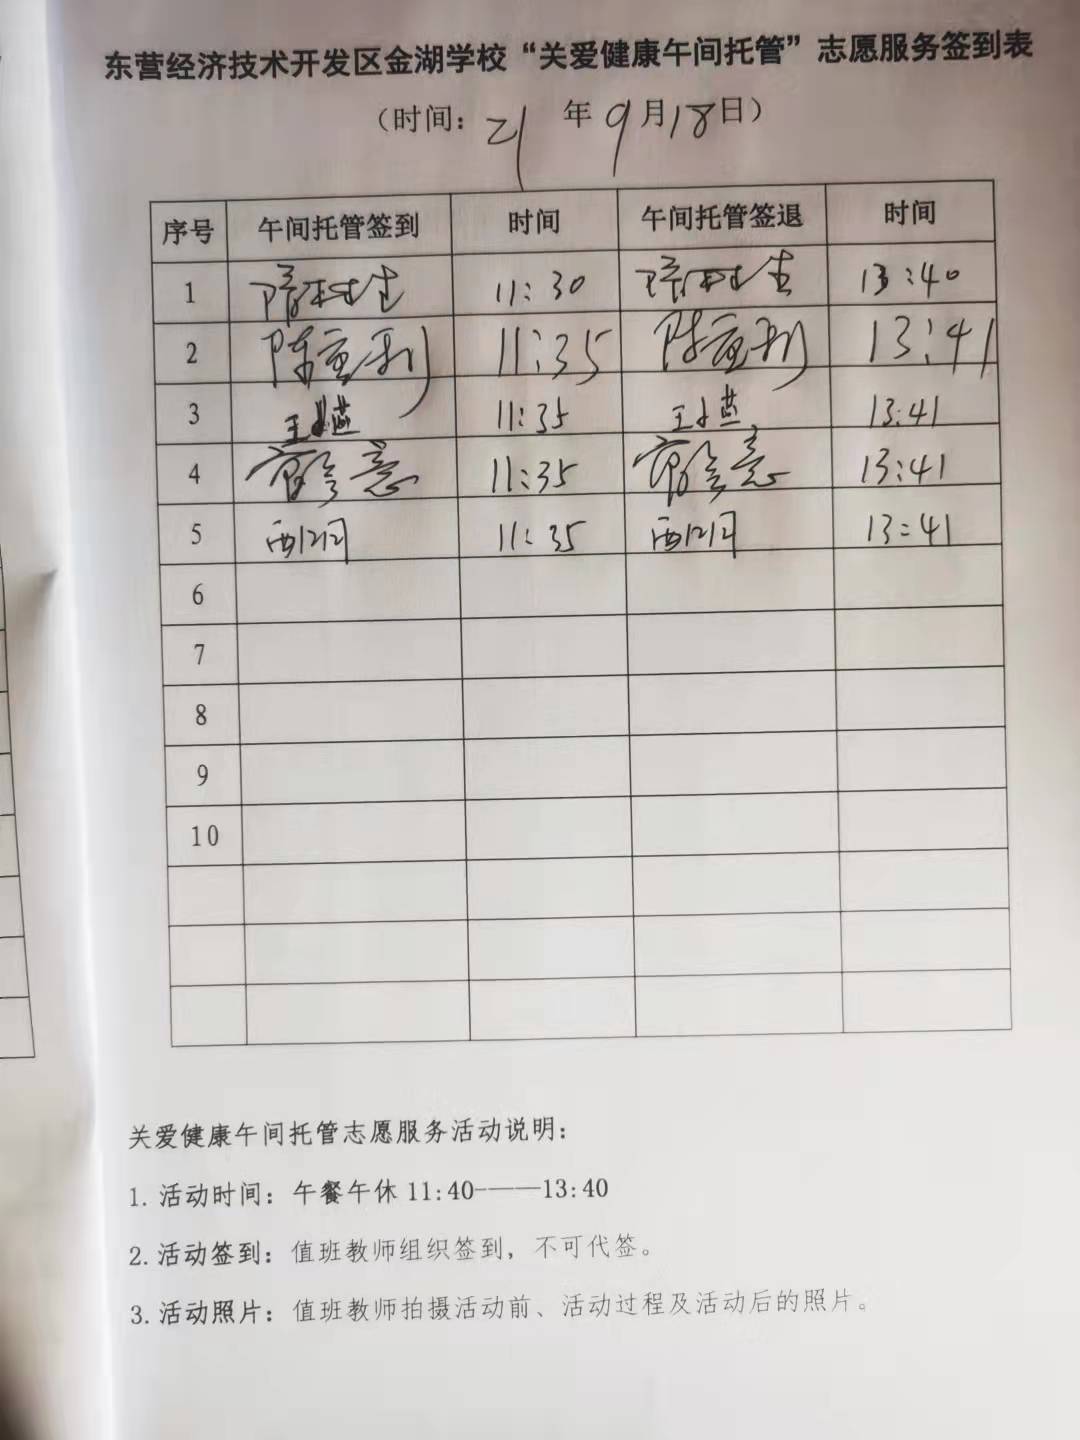 东营经济技术开发区金湖学校“关爱健康午间托管”志愿服务签到表
（时间：21 年 9月18日）
序号 午间托管签到 时间 午间托管签退 时间
1 11:30 13:40
2 11:35 13:41
3 11:35 13:41
4 11:35 13:41
5 11:35 13:41
6
7
8
9
10
关爱健康午间托管志愿服务活动说明：
1. 活动时间：午餐午休 11:40-——13:40
2. 活动签到：值班教师组织签到，不可代签。
3. 活动照片：值班教师拍摄活动前、活动过程及活动后的照片。